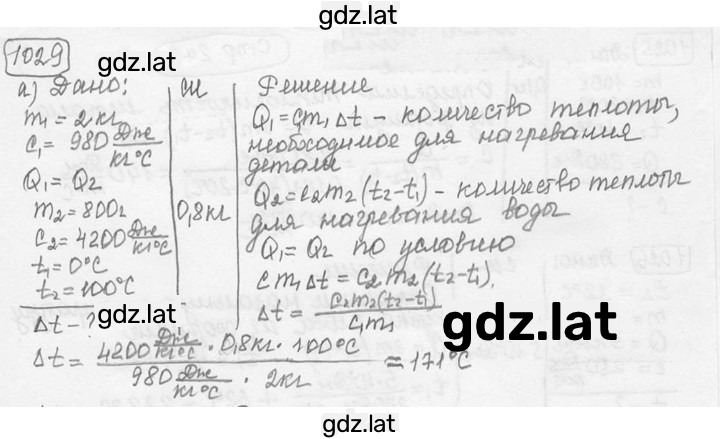 gdz.lat
1029
а) Дано:
m₁=2кг
c₁= 980 Дж/кг°С
Q₁=Q₂
m₂=800г
c₂=4200 Дж/кг°С
t₁=0°С
t₂=100°С
gdz.lat
Δt-?
СИ
0,8кг
Решение
Q₁=cm₁Δt - количество теплоты,
необходимое для нагревания
детали.
Q₂=c₂m₂(t₂-t₁) - количество теплоты
для нагревания воды
Q₁=Q₂ по условию
cm₁Δt=c₂m₂(t₂-t₁).
Δt= c₂m₂(t₂-t₁)/c₁m₁
gdz.lat
Δt= 4200 Дж/кг°С · 0,8кг · 100°С / 980 Дж/кг°С · 2кг = 171°С
gdz.lat